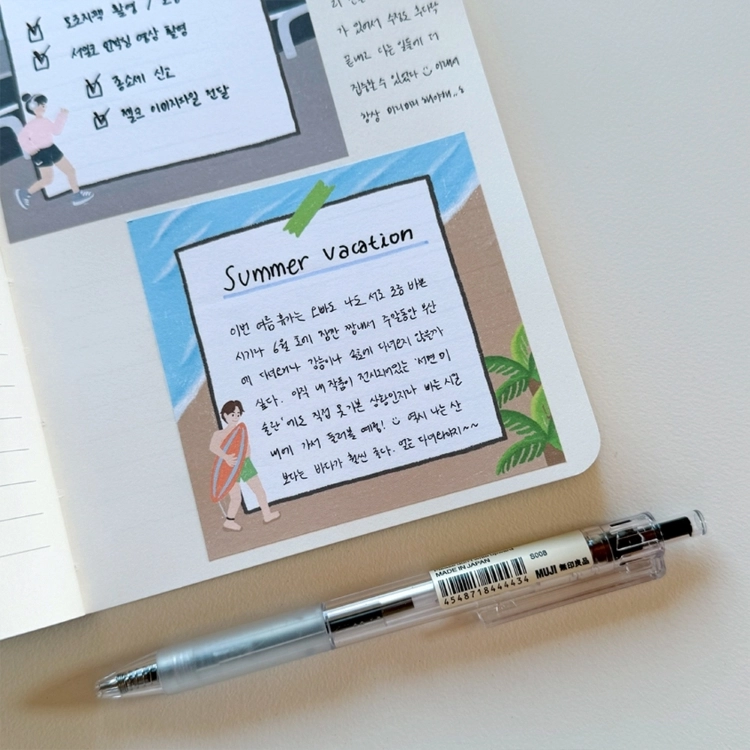 도조시깩 촬영 /
서멜코 언박싱 영상 촬영
종소세 신고
젤코 이미지파일 전달
가 있어서 수정도 후다닥
끝내고 다른 일들에 더
집중할 수 있었다 이래서
항상 미리미리 해야해..!
Summer vacation
이번 여름 휴가는 오빠도 나도 서로 조금 바쁜
시기라 6월 초에 잠깐 짬내서 주말동안 부산
에 다녀오거나 강릉이나 속초에 다녀오지 않을까
싶다. 아직 내 작품이 전시되어있는 '서면 미
술관'에도 직접 못가본 상황인지라 바쁜 시일
내에 가서 둘러볼 예정! 역시 나는 산
보다는 바다가 훨씬 좋다. 얼른 다녀와야지~~
MADE IN JAPAN
S008
4548718444434
MUJI 無印良品